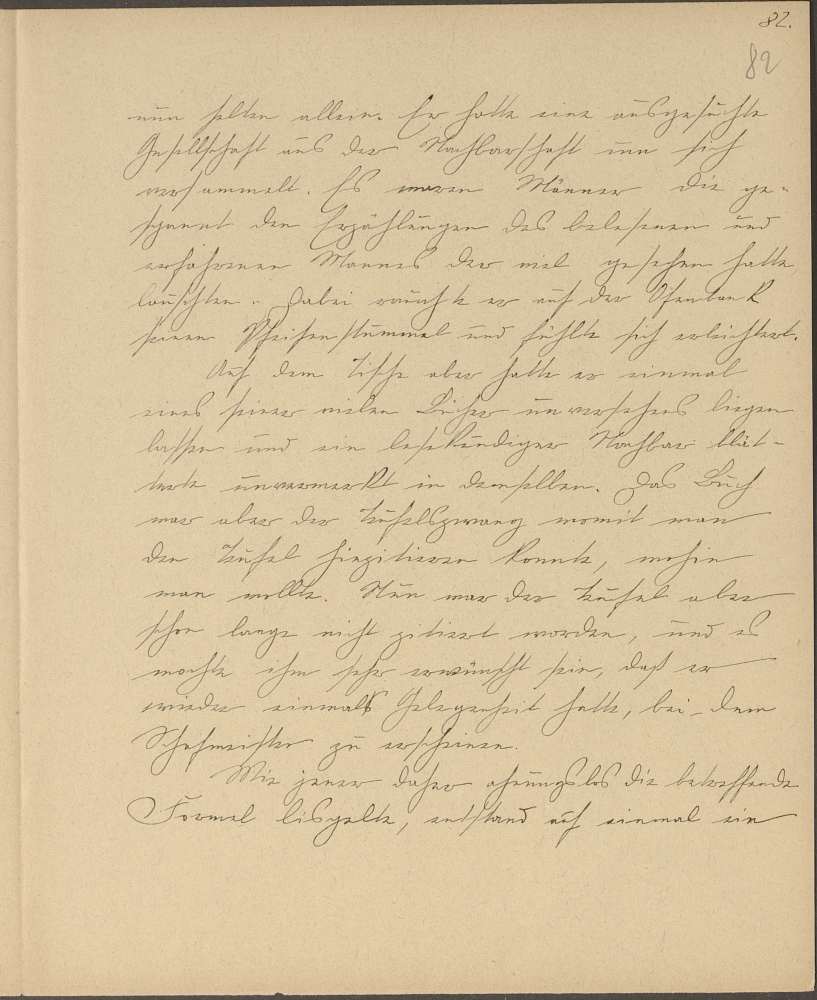 82.
82
nun selten allein. Er hatte eine ausgesuchte
Gesellschaft aus der Nachbarschaft um sich
versammelt. Es waren Männer die ge-
spannt den Erzählungen des belesenen und
erfahrenen Mannes der viel gesehen hatte
lauschten. Dabei rauchte er auf der Ofenbank
seinen Pfeifenstummel und fühlte sich erleichtert.
Auf dem Tische aber hatte er einmal
eines seiner vielen Bücher unversehens liegen
lassen und ein lesekundiger Nachbar blät-
terte unvermerkt in demselben. Das Buch
war aber der Teufelszwang womit man
den Teufel hinzitieren konnte, wohin
man wollte. Nun war der Teufel aber
schon lange nicht zitiert worden, und es
mochte ihm sehr erwünscht sein, daß er
wieder einmal Gelegenheit hatte, bei dem
Schafmeister zu erscheinen.
Wie jener daher ahnungslos die betreffende
Formel lispelte, entstand auf einmal ein